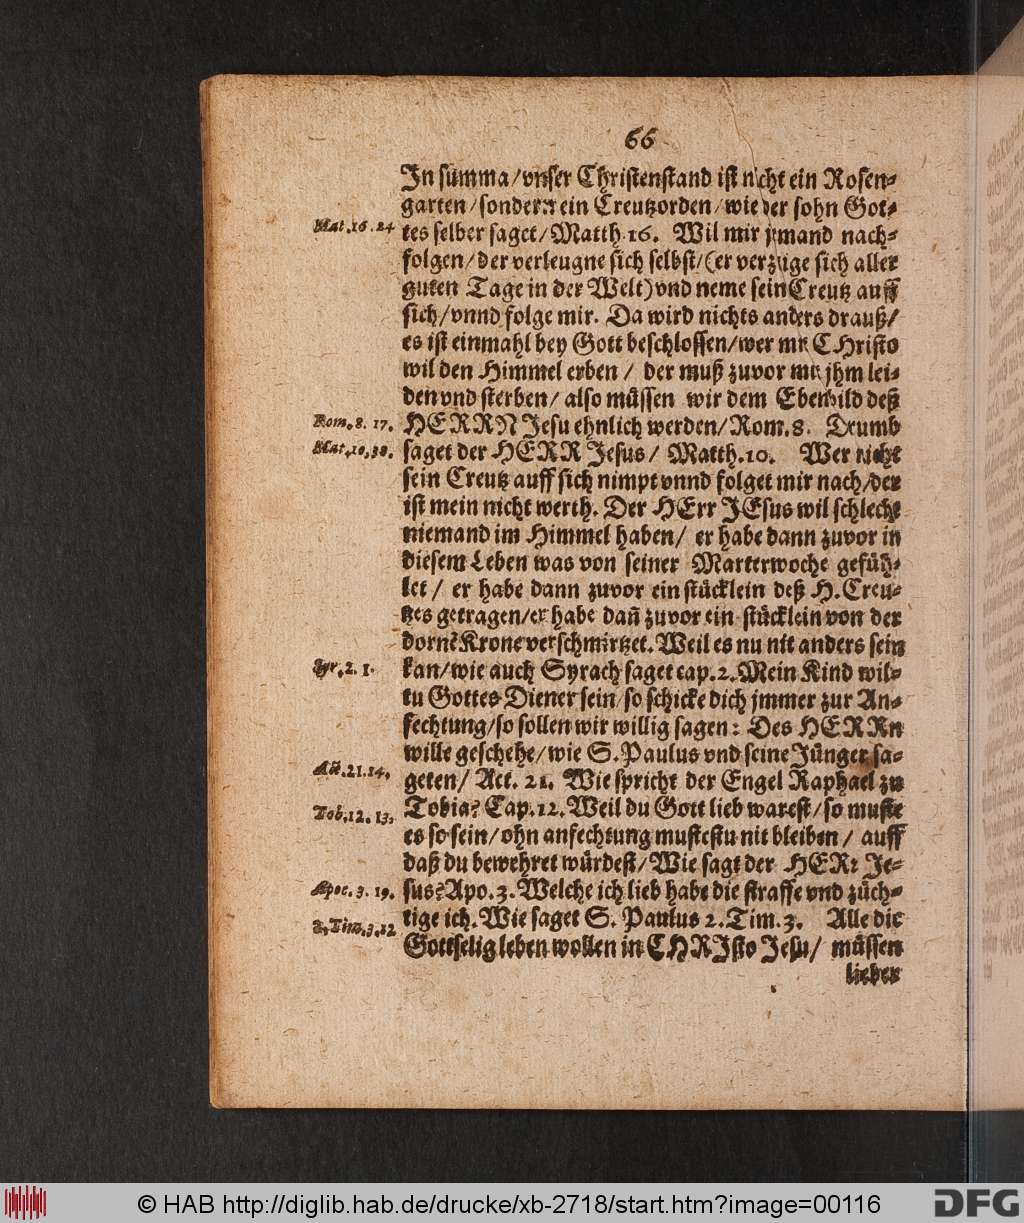 66
In summa/vnser Christenstand ist nicht ein Rosen-
garten/sondern ein Creutzorden/wie der sohn Got-
Mat.16.24
tes selber saget/Matth.16. Wil mir jemand nach-
folgen/der verleugne sich selbst/(er verzeige sich aller
guten Tage in der Welt)vnd neme sein Creutz auff
sich/vnnd folge mir. Da wird nichts anders drauß/
es ist einmahl bey Gott beschlossen/wer mit CHristo
wil den Himmel erben/ der muß zuvor mit jhm lei-
den vnd sterben/ also müssen wir dem Ebenbild deß
Rom.8.17.
HERRN Jesu ehnlich werden/Rom.8. Drumb
Mat.10.38.
saget der HERR Jesus/ Matth.10. Wer nicht
sein Creutz auff sich nimpt vnnd folget mir nach/der
ist mein nicht werth. Der HErr JEsus wil schlecht
niemand im Himmel haben/ er habe dann zuvor in
diesem Leben was von seiner Marterwoche gefüh-
let/ er habe dann zuvor ein stücklein deß H.Creu-
tzes getragen/er habe dañ zuvor ein stücklein von der
dornẽ Krone verschmirtzet. Weil es nu nit anders sein
Syr.2.1.
kan/wie auch Syrach saget cap.2. Mein Kind wil-
tu Gottes Diener sein/so schicke dich jmmer zur An-
fechtung/so sollen wir willig sagen: Des HERRn
wille geschehe/wie S.Paulus vnd seine Jünger sa-
Act.21.14.
geten/ Act. 21. Wie spricht der Engel Raphael zu
Tob.12.13.
Tobia? Cap.12. Weil du Gott lieb warest/so muste
es so sein/ohn anfechtung mustestu nit bleiben/ auff
daß du bewehret würdest/Wie sagt der HERr Je-
Apoc.3.19.
sus? Apo.3. Welche ich lieb habe die straffe vnd züch-
2.Tim.3.12
tige ich. Wie saget S. Paulus 2.Tim.3. Alle die
Gottselig leben wollen in CHRJsto Jesu/ müssen
lieber
© HAB http://diglib.hab.de/drucke/xb-2718/start.htm?image=00116
DFG